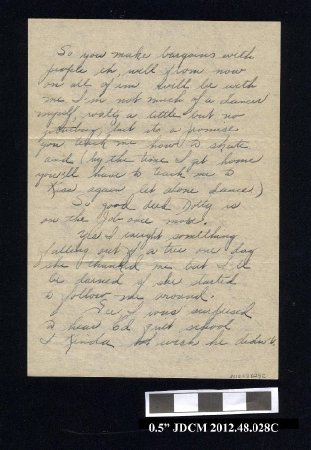 So you make bargains with
people eh, well from now
on all of em will be with
me. I'm not much of a dancer
myself, waltz a little but no
jitterbug but its a promise
you teach me how to skate
and (by the time I get home
you'll have to teach me to
kiss again let alone dance)
So good deed Dotty is
on the job once more.
Yes I caught something
falling out of a tree one day
she thanked me but I'll
be darned if she started
to follow me around.
Gee I was surprised
to hear Ed quit school
I kinda wish he didn't
0.5" JDCM 2012.48.028C